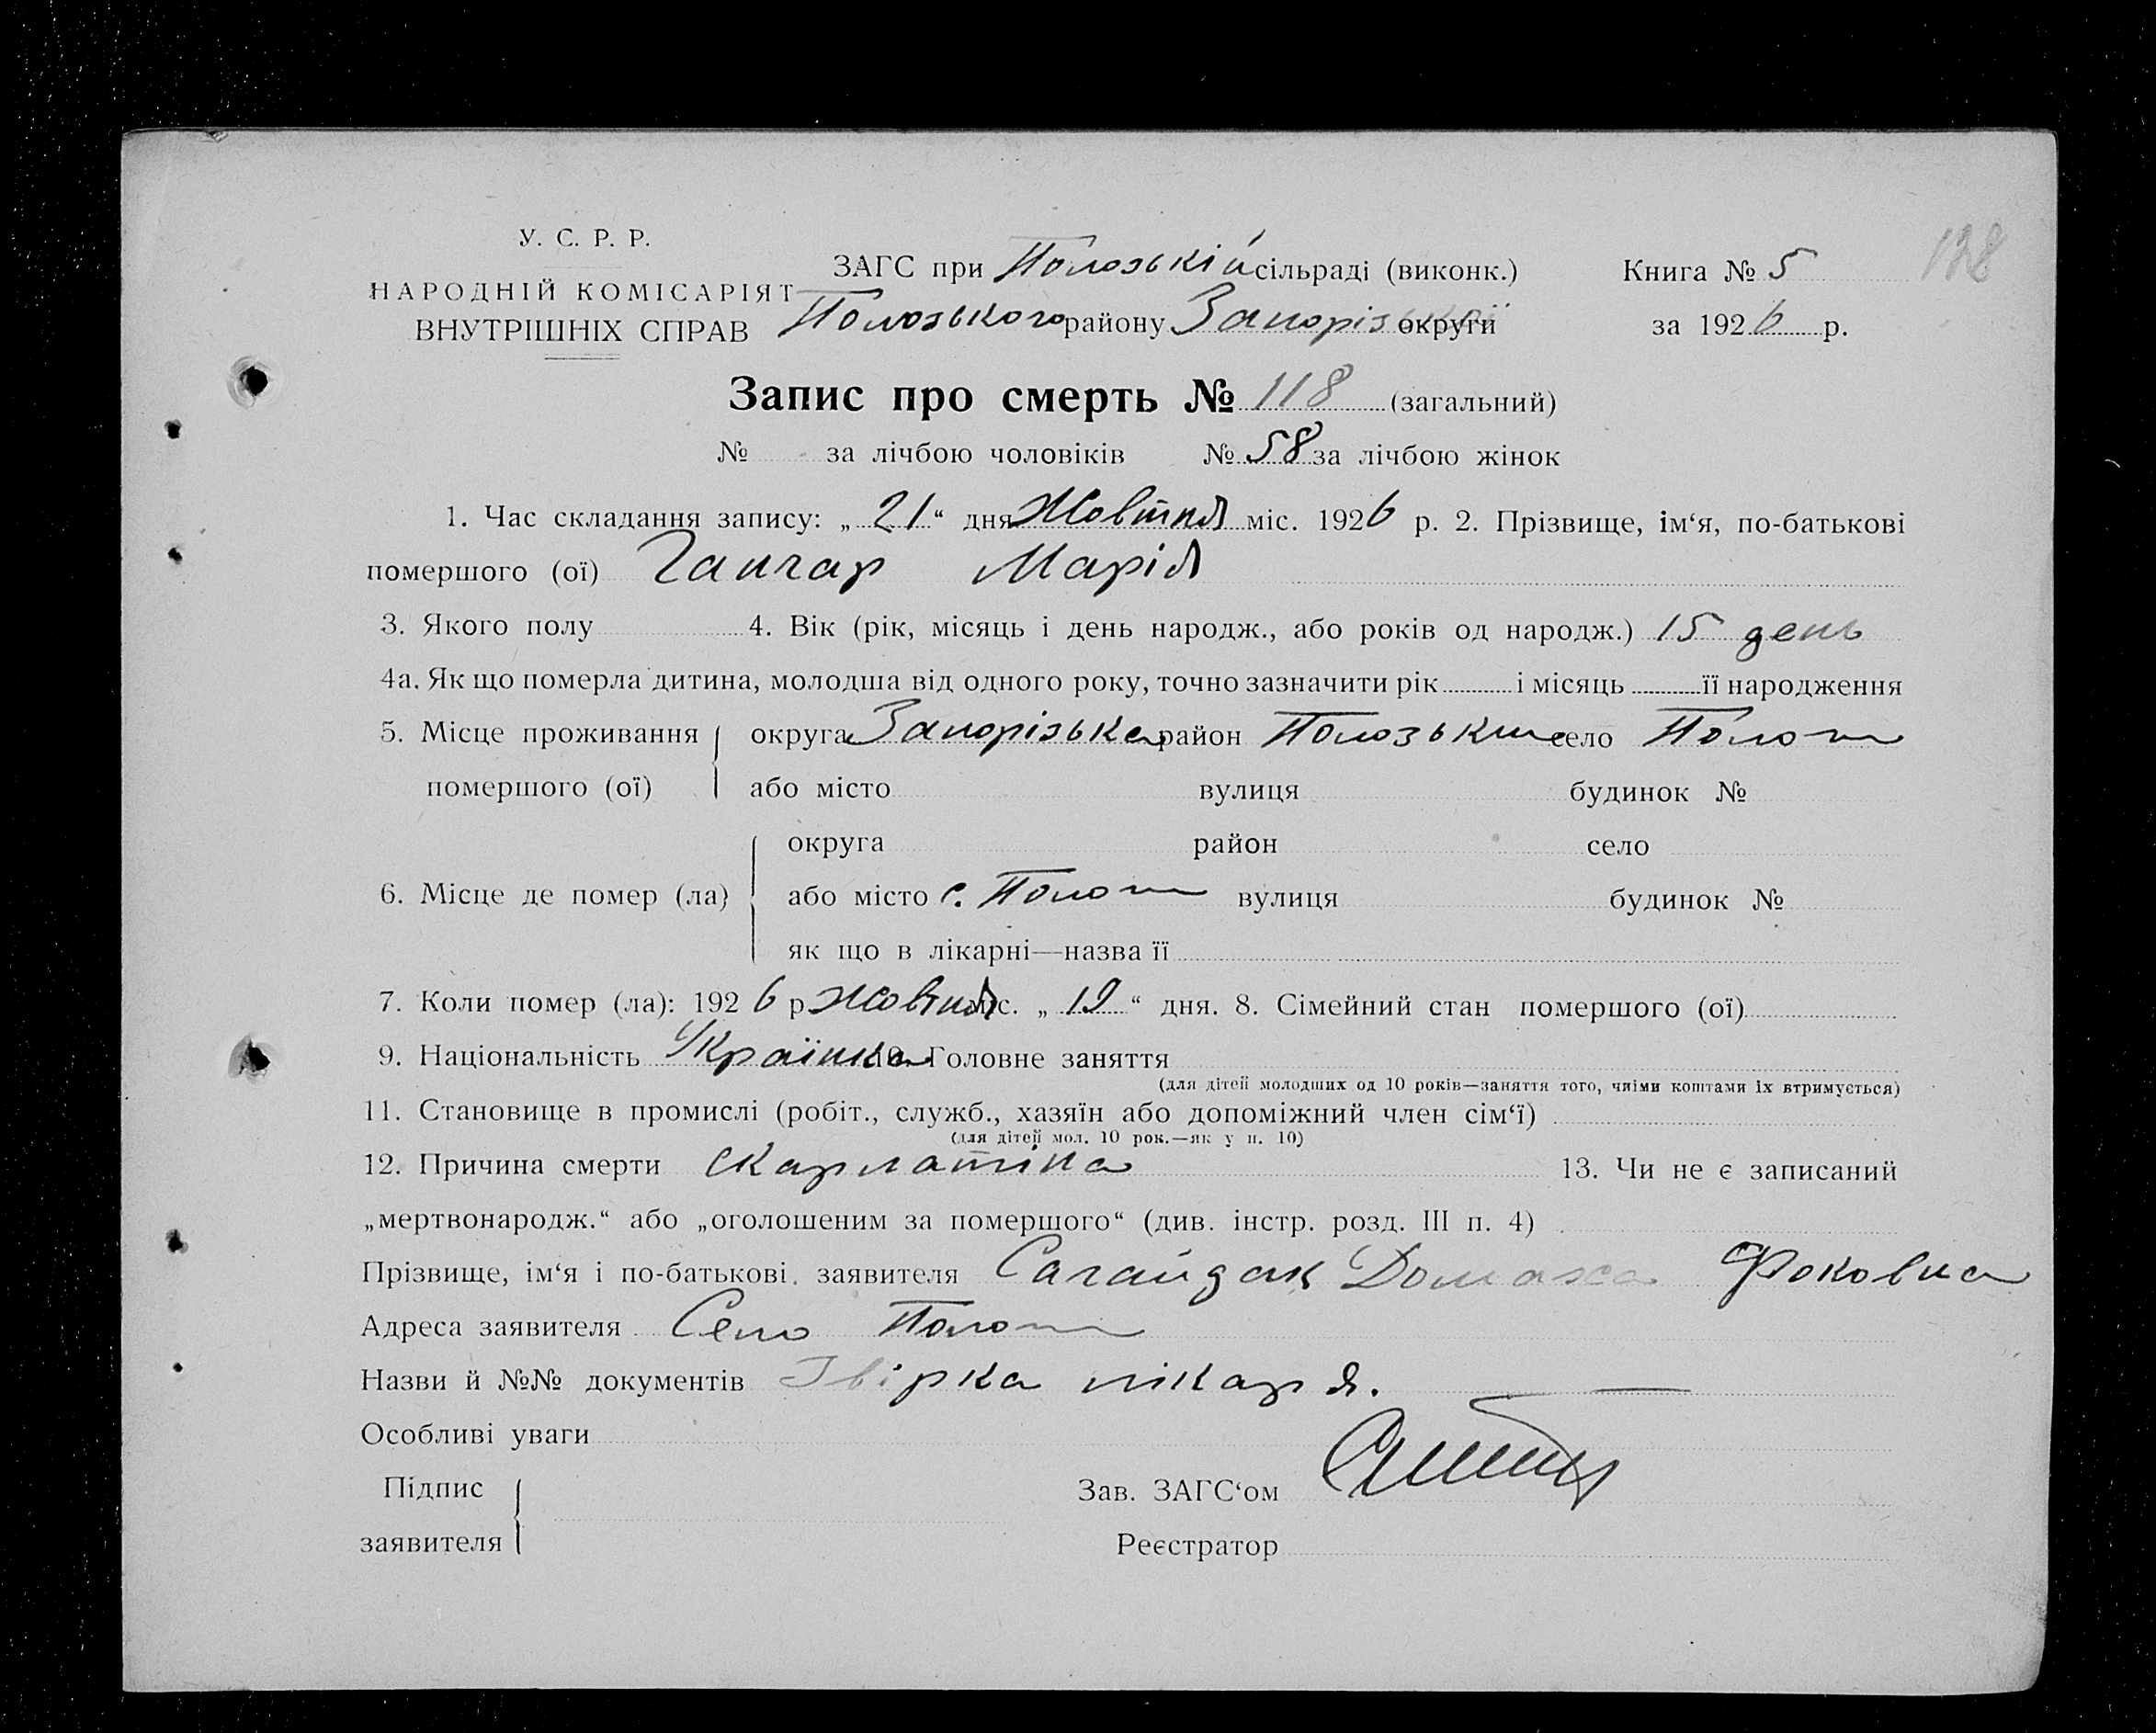 У. С. Р. Р.
НАРОДНІЙ КОМІСАРІЯТ
ВНУТРІШНІХ СПРАВ
ЗАГС при Пологській сільраді (виконк.)
Пологського району Запорізької округи
Книга № 5
за 1926 р.
138
Запис про смерть № 118 (загальний)
№ за лічбою чоловіків № 58 за лічбою жінок
1. Час складання запису: „21“ дня Жовтня міс. 1926 р. 2. Прізвище, ім‘я, по-батькові
помершого (ої) Ганчар Марія
3. Якого полу 4. Вік (рік, місяць і день народж., або років од народж.) 15 день
4а. Як що померла дитина, молодша від одного року, точно зазначити рік і місяць її народження
5. Місце проживання округа Запорізька район село Пологи
помершого (ої) або місто вулиця будинок №
округа район село
6. Місце де помер (ла) або місто с. Пологи вулиця будинок №
як що в лікарні—назва її
7. Коли помер (ла): 1926 р. Жовтня міс. „19“ дня. 8. Сімейний стан помершого (ої)
9. Національність Українка 10. Головне заняття
(для дітей молодших од 10 років—заняття того, чиїми коштами їх втримується)
11. Становище в промислі (робіт., служб., хазяїн або допоміжний член сім‘ї)
(для дітей мол. 10 рок.—як у п. 10)
12. Причина смерти Скарлатіна 13. Чи не є записаний
„мертвонародж.“ або „оголошеним за помершого“ (див. інстр. розд. III п. 4)
Прізвище, ім‘я і по-батькові заявителя Сагайдак Домаха Фоковна
Адреса заявителя Село Пологи
Назви й №№ документів лікаря.
Особливі уваги
Підпис
заявителя
Зав. ЗАГС‘ом
Реєстратор